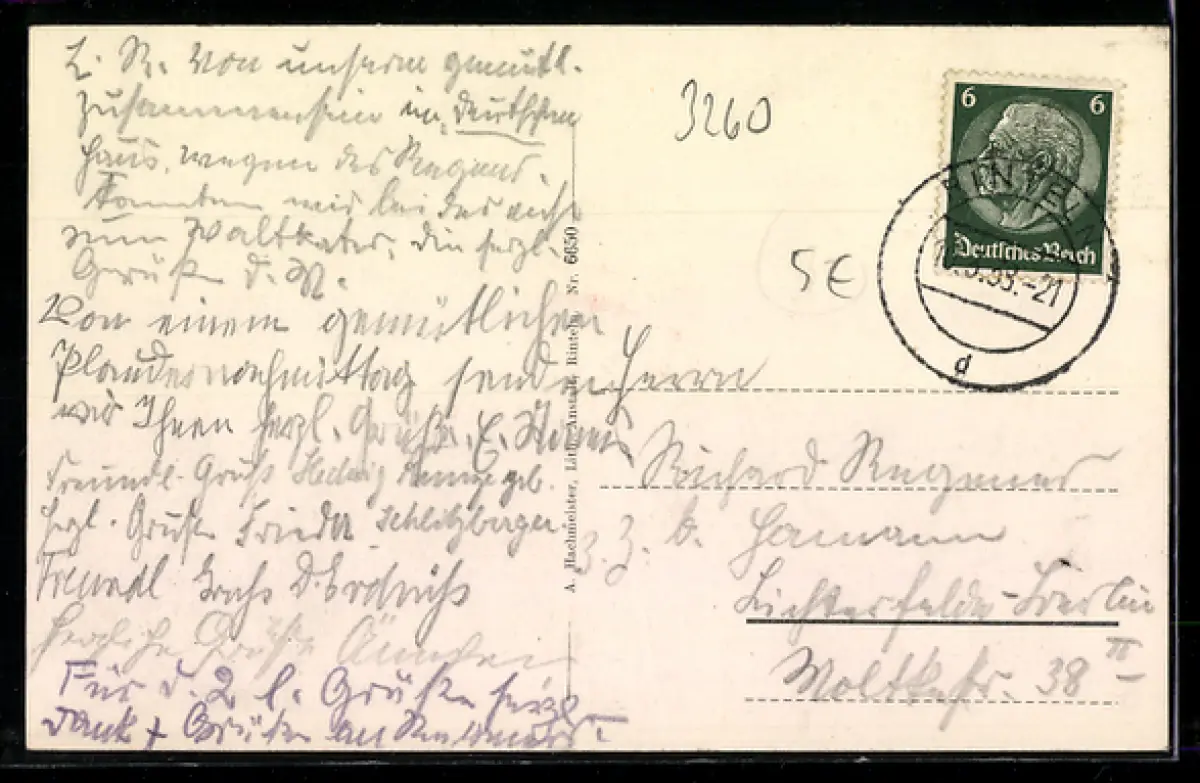 L. R. Von unserm gemütl.
Zusammensein im deutschen
Haus. wegen des Regens.
konnten wir bei das nicht
zum Waltkater. die herzl.
Grüße d. M.
Von einem gemütlichen
Plaudernachmittag senden
wir Ihnen herzl. Grüße. E.
Freundl. Gruß Hedwig geb.
herzl. Grüße Frieda Schlitzberger.
Freundl Gruß
herzliche Grüße
Für d. 2 l. Grüße herzl.
Dank + Grüße an
A. Hachmeister, Lith. Anstalt, Rinteln Nr. 6650
3260
5€
6 6
Deutsches Reich
RINTELN
.38.-21
d
Herrn
Richard Regener
z. Z. b. Hamann
Lichterfelde-Berlin
Moltkestr. 38 II